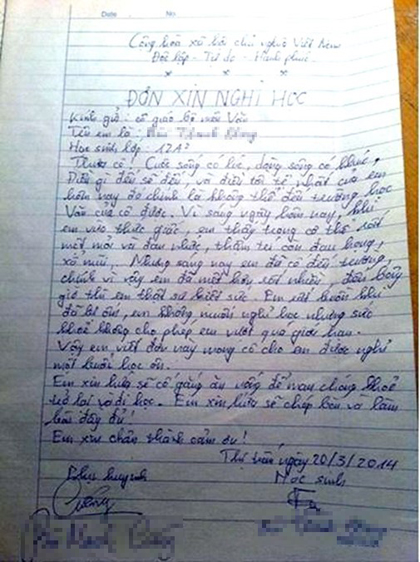 Date No
Cộng hòa xã hội chủ nghĩa Việt Nam
Độc lập - Tự do - Hạnh phúc
x x x
ĐƠN XIN NGHỈ HỌC
Kính gửi: cô giáo bộ môn Văn
Tên em là:
Học sinh lớp: 12A2
Thưa cô! Cuộc sống có lúc, dòng sông có khúc,
Điều gì đến sẽ đến, và điều tồi tệ nhất của em
hôm nay đó chính là không thể đến trường học
Văn của cô được. Vì sáng ngày hôm nay, khi
em vừa thức giấc, em thấy trong cơ thể rất
mệt mỏi và đau nhức, thậm trí còn đau họng,
xổ mũi. Nhưng sáng nay em đã cố đến trường,
chính vì vậy em đã mệt hơn rất nhiều, đến bây
giờ thì em thật sự kiệt sức. Em rất buồn khi
đã bị ốm, em không muốn nghỉ học nhưng sức
khoẻ không cho phép em vượt quá giới hạn.
Vậy em viết đơn này mong cô cho em được nghỉ
một buổi học ôn.
Em xin hứa sẽ cố gắng ăn uống để mau chóng khoẻ
trở lại và đi học. Em xin hứa sẽ chép bài và làm
bài đầy đủ!
Em xin chân thành cảm ơn!
Thứ năm ngày 20/3/2014
Phụ huynh Học sinh